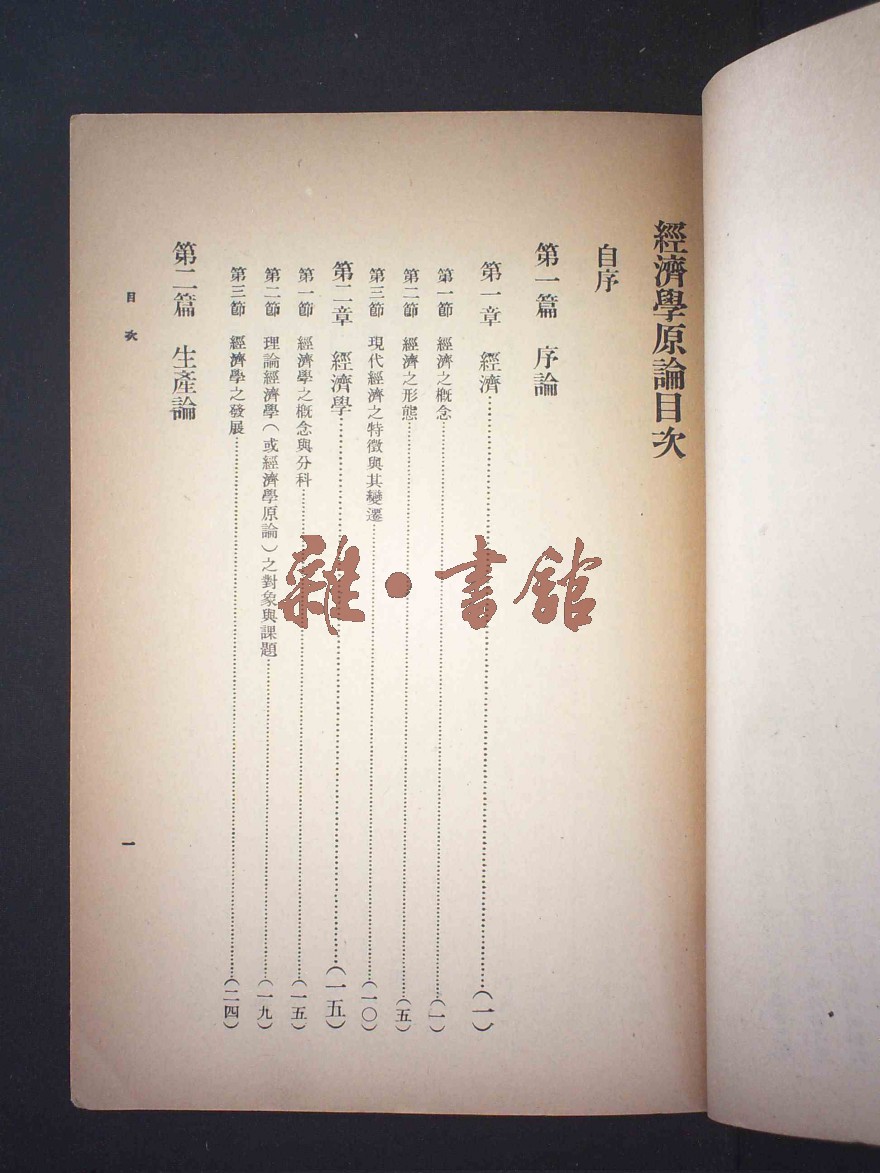 經濟學原論目次
自序
第一篇 序論
第一章 經濟……………(一)
第一節 經濟之概念……………(一)
第二節 經濟之形態……………(五)
第三節 現代經濟之特徵與其變遷……………(一〇)
第二章 經濟學……………(一五)
第一節 經濟學之概念與分科……………(一五)
第二節 理論經濟學(或經濟學原論)之對象與課題……………(一九)
第三節 經濟學之發展……………(二四)
第二篇 生產論
目次
一
雜·書館